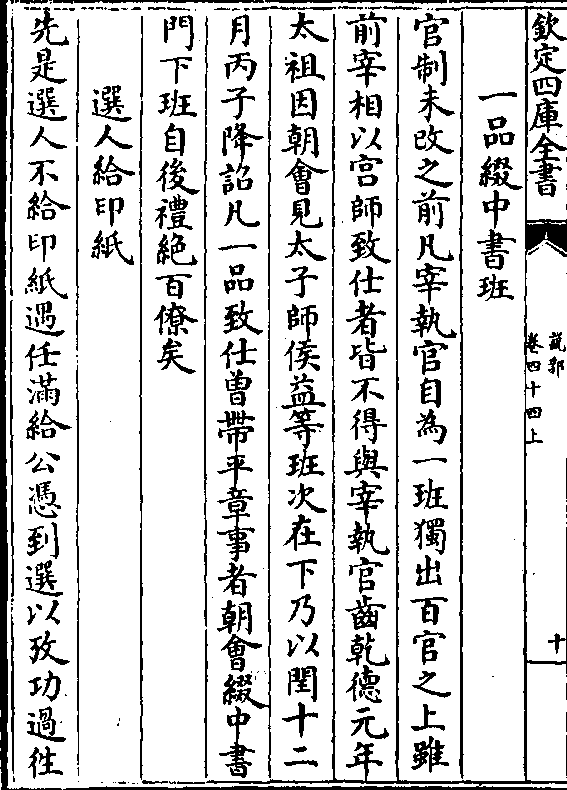 欽定四庫全書
說郛
卷四十四上
十
一品綴中書班
官制未改之前凡宰執官自為一班獨出百官之上雖
前宰相以宫師致仕者皆不得與宰執官齒乾德元年
太祖因朝會見太子師侯益等班次在下乃以閏十二
月丙子降詔凡一品致仕曽帶平章事者朝會綴中書
門下班自後禮絶百僚矣
選人給印紙
先是選人不給印紙遇任滿給公憑到選以攷功過徃